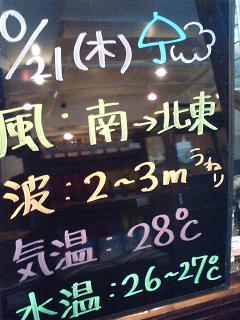 0/21(木)
風:南→北東
波:2~3mうねり
気温:28℃
水温:26~27℃